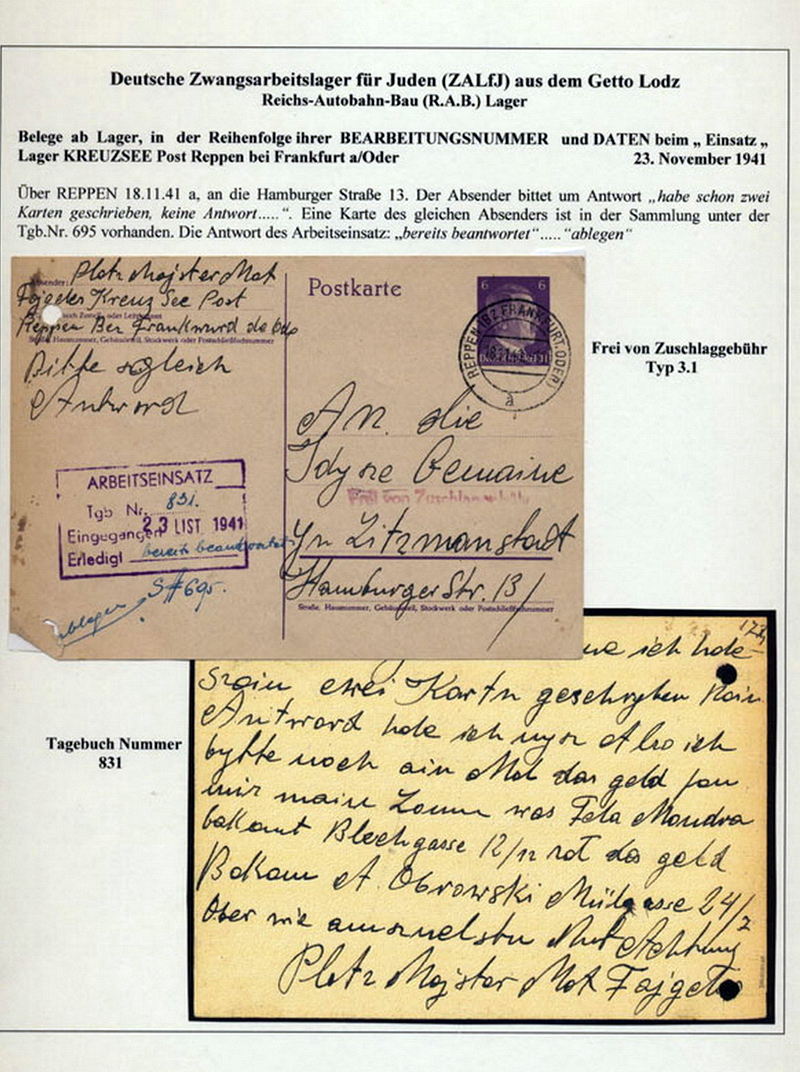 Deutsche Zwangsarbeitslager für Juden (ZALfJ) aus dem Getto Lodz
Reichs-Autobahn-Bau (R.A.B.) Lager
Belege ab Lager, in der Reihenfolge ihrer BEARBEITUNGSNUMMER und DATEN beim „ Einsatz „
Lager KREUZSEE Post Reppen bei Frankfurt a/Oder 23. November 1941
Über REPPEN 18.11.41 a, an die Hamburger Straße 13. Der Absender bittet um Antwort „habe schon zwei
Karten geschrieben, keine Antwort.....“. Eine Karte des gleichen Absenders ist in der Sammlung unter der
Tgb.Nr. 695 vorhanden. Die Antwort des Arbeitseinsatz: „bereits beantwortet“..... “ablegen“
Absender: Platz Majster Mot
Fajgeles Kreuz See Post
Reppen Bei
Straße, Hausnummer, Gebäudeteil, Stockwerk oder Postschließfachnummer
Bitte sogleich
Antword
ARBEITSEINSATZ
Tgb Nr. 831.
Eingegangen 23 LIST 1941
Erledigt bereits beantwortet
S # 695.
ablegen
Postkarte
6 6
REPPEN (BZ FRANKFURT ODER)
a
An die
Gemaine
Frei von Zuschlaggebühr
Yn Litzmanstadt
Hamburger Str. 13/
Straße, Hausnummer, Gebäudeteil, Stockwerk oder Postschließfachnummer
Frei von Zuschlaggebühr
Typ 3.1
Tagebuch Nummer
831
ich habe
szoin cwei Kartn geschryben Kain
Antword habe ich Also ich
bytte noch ain Mol das geld
mir main was Fela Mandra
bakamt Blechgasse 12/12 das geld
Bakam A Obrowski Mülgasse 24/7
Ober wie Mit Achtung
Platz Majster Mot Fajgeles